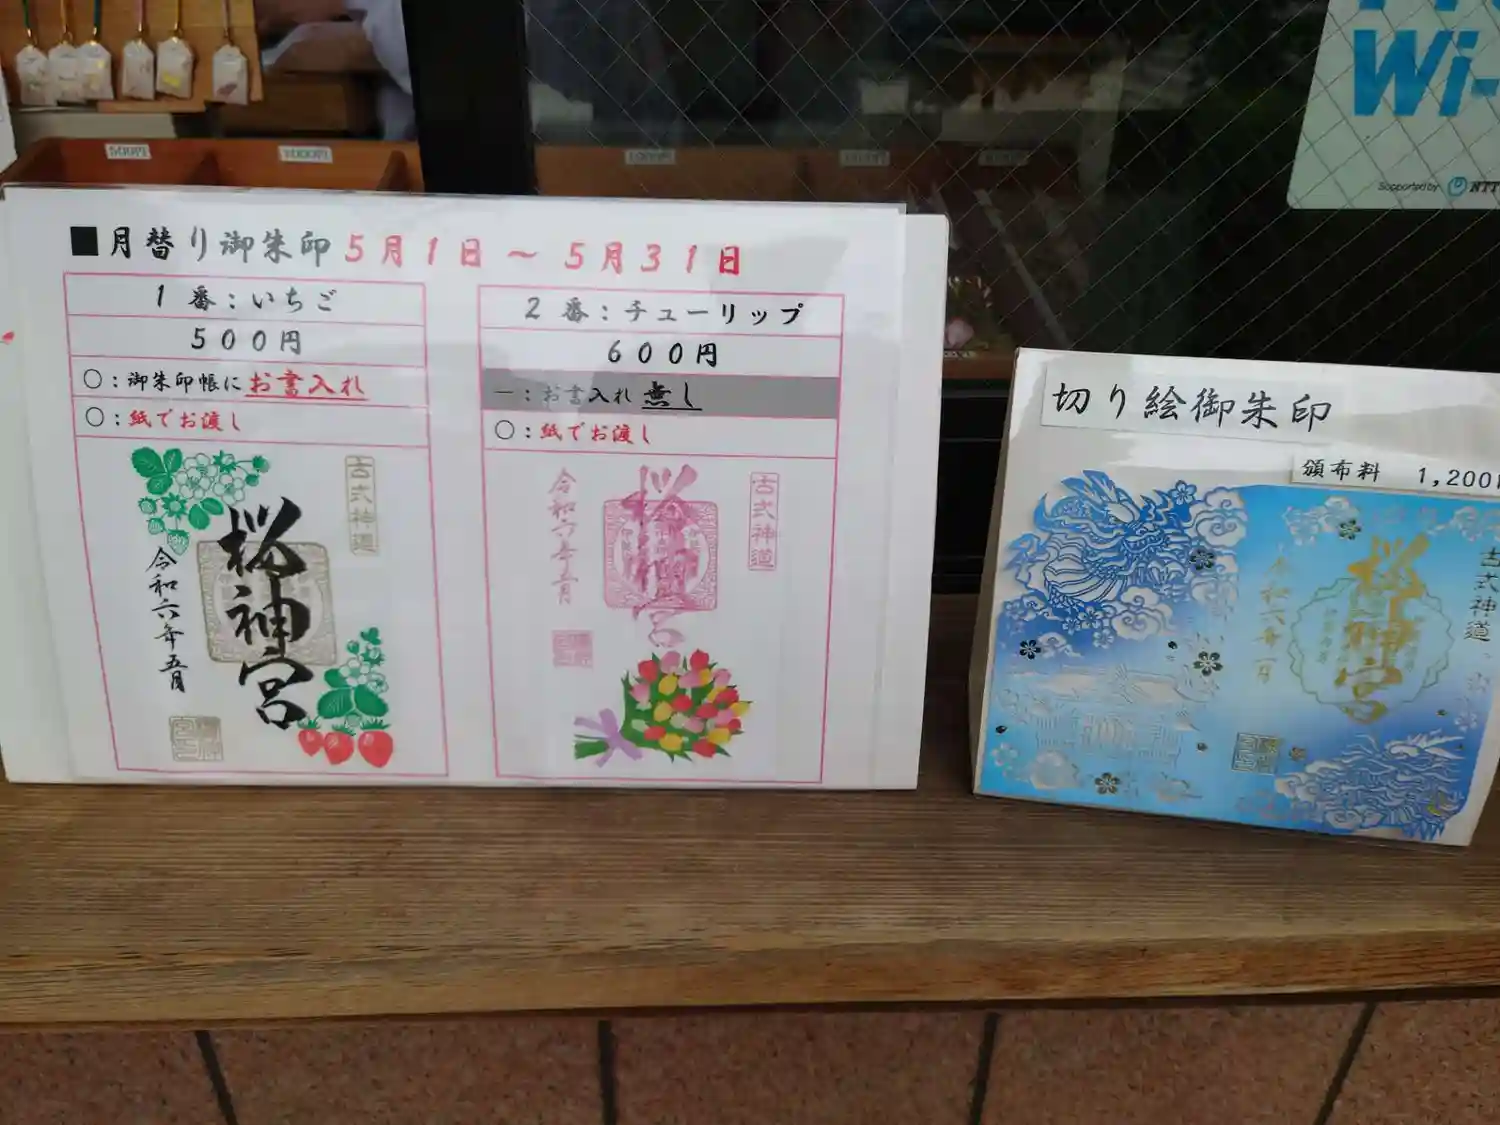 ■月替り御朱印 5月1日 ～ 5月31日
1 番：いちご
500円
〇：御朱印帳にお書入れ
〇：紙でお渡し
古式神道
桜神宮
令和六年五月
2 番：チューリップ
600円
－：お書入れ 無し
〇：紙でお渡し
古式神道
桜神宮
令和六年五月
切り絵御朱印
頒布料 1,200円
古式神道
桜神宮
Wi-
Supported by NTT
500円
1000円